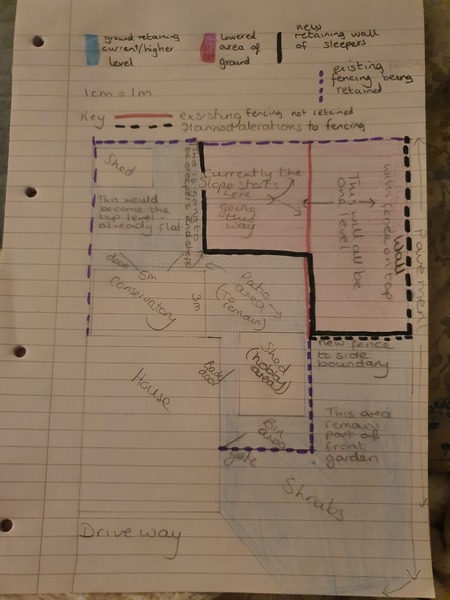 ground retaining
current/higher
level
lowered
area of
ground
new
retaining wall
of sleepers
existing
fencing being
retained
1cm = 1m
Key
exsisting fencing not retained
planned alerations to fencing
Shed
This would
become the
top level -
already flat
Currently the
slope starts
here
going
this
way
This will all be
one level
Wall
with fence on top
Pavement
door
5m
Conservatory
3m
Patio
area
(to
remain)
Shed
(hobby
area)
new fence
to side
boundary
House
door
Bin
area
gate
This area
remains
part of
front
garden
Shrubs
Drive way